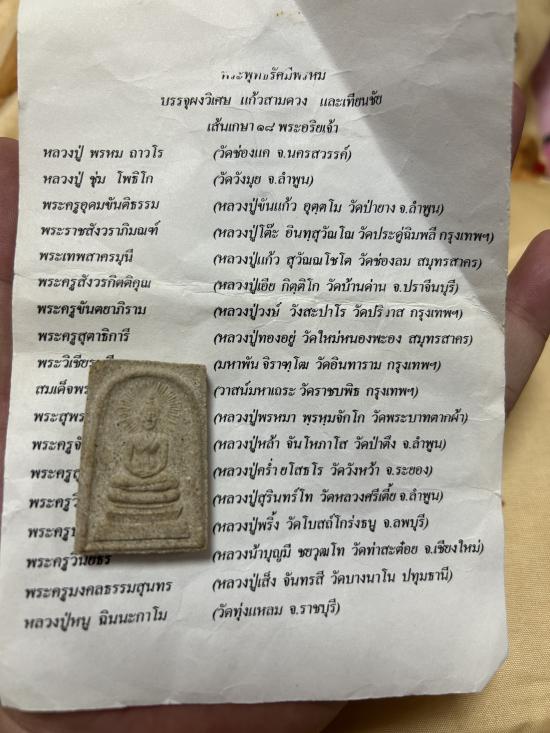 บรรจุผงวิเศษ แก้วสามดวง และเทียนชัย
เส้นเกษา ๑๘ พระอริยเจ้า
หลวงปู่ พรหม ถาวโร (วัดช่องแค จ.นครสวรรค์)
หลวงปู่ ชุ่ม โพธิโก (วัดวังมุย จ.ลำพูน)
พระครูอุดมขันติธรรม (หลวงปู่ขันแก้ว อุตฺตโม วัดป่ายาง จ.ลำพูน)
พระราชสังวราภิมณฑ์ (หลวงปู่โต๊ะ อินฺทสุวัณโณ วัดประดู่ฉิมพลี กรุงเทพฯ)
พระเทพสาครมุนี (หลวงปู่แก้ว สุวัณณโชโต วัดช่องลม สมุทรสาคร)
พระครูสังวรกิตติคุณ (หลวงปู่เอีย กิตฺติโก วัดบ้านด่าน จ.ปราจีนบุรี)
พระครูขันตยาภิราม (หลวงปู่วงษ์ วังสะปาโร กรุงเทพฯ)
พระครูสุตาธิการี (หลวงปู่ทองอยู่ วัดใหม่หนองพะอง สมุทรสาคร)
(มหาพัน จิราฑุโฒ วัดอินทาราม กรุงเทพฯ)
(วาสน์มหาเถระ วัดราชบพิธ กรุงเทพฯ)
(หลวงปู่พรหมา พรฺหฺมจักโก วัดพระบาทตากผ้า)
(หลวงปู่หล้า จันโทภาโส วัดป่าตึง จ.ลำพูน)
(หลวงปู่คร่ำ ยโสธโร วัดวังหว้า จ.ระยอง)
(หลวงปู่สุรินทร์โท วัดหลวงศรีเตี้ย จ.ลำพูน)
(หลวงปู่พริ้ง วัดโบสถ์โก่งธนู จ.ลพบุรี)
(หลวงน้าบุญมี ชยวุฒโท วัดท่าสะต๋อย จ.เชียงใหม่)
พระครูมงคลธรรมสุนทร (หลวงปู่เส็ง จันทรสี วัดบางนาโน ปทุมธานี)
หลวงปู่หนู ฉินนะกาโม (วัดทุ่งแหลม จ.ราชบุรี)